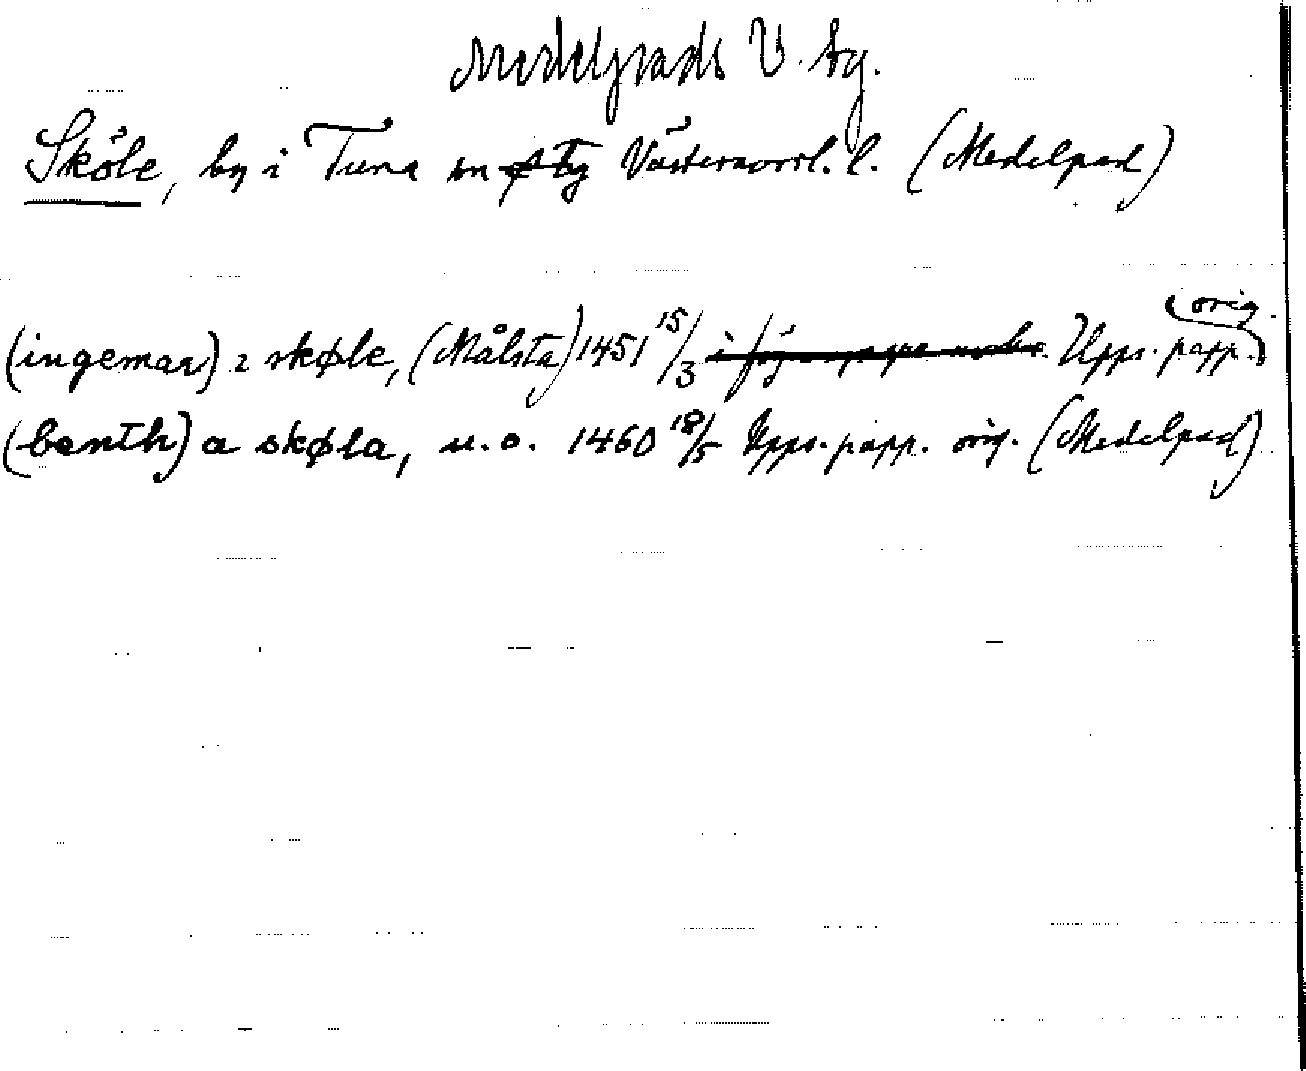 Medelpads V. tg.
Sköle, by i Tuna sn Västernorrl. l. (Medelpad)
orig.
(ingemar) i skøle, (Målsta) 1451 15/3 Upps. papp.
(benth) a skøla, u. o. 1460 18/5 Upps. papp. orig. (Medelpad)